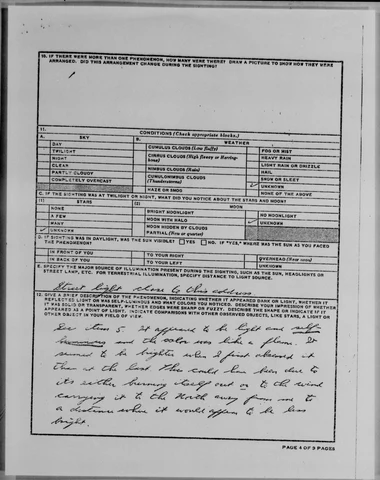 10. IF THERE WERE MORE THAN ONE PHENOMENON, HOW MANY WERE THERE? DRAW A PICTURE TO SHOW HOW THEY WERE
ARRANGED. DID THIS ARRANGEMENT CHANGE DURING THE SIGHTING?
11. CONDITIONS (Check appropriate blocks.)
A. SKY
B. WEATHER
DAY
CUMULUS CLOUDS (Low fluffy)
FOG OR MIST
TWILIGHT
CIRRUS CLOUDS (High fleecy or Herring-
bone)
HEAVY RAIN
NIGHT
LIGHT RAIN OR DRIZZLE
CLEAR
NIMBUS CLOUDS (Rain)
HAIL
PARTLY CLOUDY
CUMULONIMBUS CLOUDS
(Thunderstorms)
SNOW OR SLEET
COMPLETELY OVERCAST
UNKNOWN
HAZE OR SMOG
NONE OF THE ABOVE
C. IF THE SIGHTING WAS AT TWILIGHT OR NIGHT, WHAT DID YOU NOTICE ABOUT THE STARS AND MOON?
(1) STARS
(2) MOON
NONE
BRIGHT MOONLIGHT
NO MOONLIGHT
A FEW
MOON WITH HALO
UNKNOWN
MANY
MOON HIDDEN BY CLOUDS
UNKNOWN
PARTIAL (New or quarter)
D. IF SIGHTING WAS IN DAYLIGHT, WAS THE SUN VISIBLE? YES NO IF "YES," WHERE WAS THE SUN AS YOU FACED
THE PHENOMENON?
IN FRONT OF YOU
TO YOUR RIGHT
OVERHEAD (Near noon)
IN BACK OF YOU
TO YOUR LEFT
UNKNOWN
E. SPECIFY THE MAJOR SOURCE OF ILLUMINATION PRESENT DURING THE SIGHTING, SUCH AS THE SUN, HEADLIGHTS OR
STREET LAMP, ETC. FOR TERRESTRIAL ILLUMINATION, SPECIFY DISTANCE TO LIGHT SOURCE.
Street light close to this address
12. GIVE A BRIEF DESCRIPTION OF THE PHENOMENON, INDICATING WHETHER IT APPEARED DARK OR LIGHT, WHETHER IT
REFLECTED LIGHT OR WAS SELF-LUMINOUS AND WHAT COLORS YOU NOTICED. DESCRIBE YOUR IMPRESSION OF WHETHER
IT WAS SOLID OR TRANSPARENT, WHETHER EDGES WERE SHARP OR FUZZY. DESCRIBE THE SHAPE OR INDICATE IF IT
APPEARED AS A POINT OF LIGHT. INDICATE COMPARISONS WITH OTHER OBSERVED OBJECTS, LIKE STARS, A LIGHT OR
OTHER OBJECT IN YOUR FIELD OF VIEW.
See item 5. It appeared to be light and self
luminous and the color was like a flame. It
seemed to be brighter when I first observed it
than at the last. This could have been due to
its either burning itself out or to the wind
carrying it to the North away from me to
a distance where it would appear to be less
bright.
PAGE 4 OF 9 PAGES